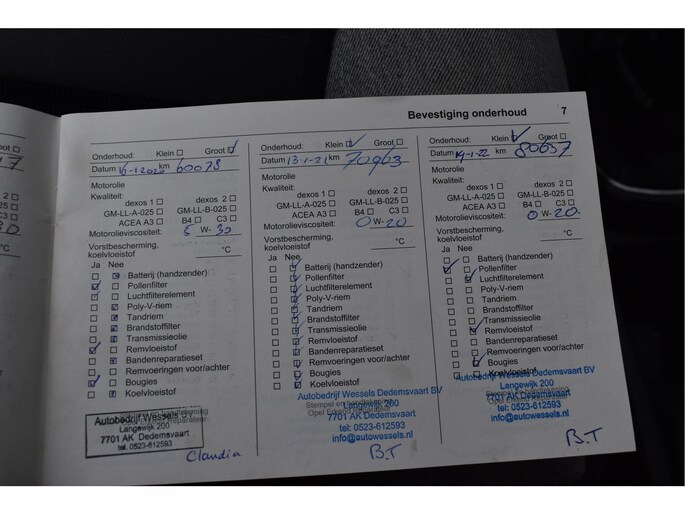 Bevestiging onderhoud 7
Onderhoud: Klein ☐ Groot ☑
Datum 16-1-2020 km 60078
Motorolie
Kwaliteit:
dexos 1 ☐ dexos 2 ☐
GM-LL-A-025 ☐ GM-LL-B-025 ☐
ACEA A3 ☐ B4 ☐ C3 ☐
Motorolieviscositeit: 5 W- 30
Vorstbescherming,
koelvloeistof °C
Ja Nee
Batterij (handzender)
Pollenfilter
Luchtfilterelement
Poly-V-riem
Tandriem
Brandstoffilter
Transmissieolie
Remvloeistof
Bandenreparatieset
Remvoeringen voor/achter
Bougies
Koelvloeistof
Autobedrijf Wessels BV
Langewijk 200
7701 AK Dedemsvaart
tel. 0523-612593
Claudia
Onderhoud: Klein ☑ Groot ☐
Datum 13-1-21 km 70963
Motorolie
Kwaliteit:
dexos 1 ☐ dexos 2 ☐
GM-LL-A-025 ☐ GM-LL-B-025 ☐
ACEA A3 ☐ B4 ☐ C3 ☐
Motorolieviscositeit: 0 W- 20
Vorstbescherming,
koelvloeistof °C
Ja Nee
Batterij (handzender)
Pollenfilter
Luchtfilterelement
Poly-V-riem
Tandriem
Brandstoffilter
Transmissieolie
Remvloeistof
Bandenreparatieset
Remvoeringen voor/achter
Bougies
Koelvloeistof
Autobedrijf Wessels Dedemsvaart BV
Langewijk 200
7701 AK Dedemsvaart
tel: 0523-612593
info@autowessels.nl
B.T
Onderhoud: Klein ☑ Groot ☐
Datum 19-1-22 km 80637
Motorolie
Kwaliteit:
dexos 1 ☐ dexos 2 ☐
GM-LL-A-025 ☐ GM-LL-B-025 ☐
ACEA A3 ☐ B4 ☐ C3 ☐
Motorolieviscositeit: 0 W- 20
Vorstbescherming,
koelvloeistof °C
Ja Nee
Batterij (handzender)
Pollenfilter
Luchtfilterelement
Poly-V-riem
Tandriem
Brandstoffilter
Transmissieolie
Remvloeistof
Bandenreparatieset
Remvoeringen voor/achter
Bougies
Koelvloeistof
Autobedrijf Wessels Dedemsvaart BV
Langewijk 200
7701 AK Dedemsvaart
tel: 0523-612593
info@autowessels.nl
B.T